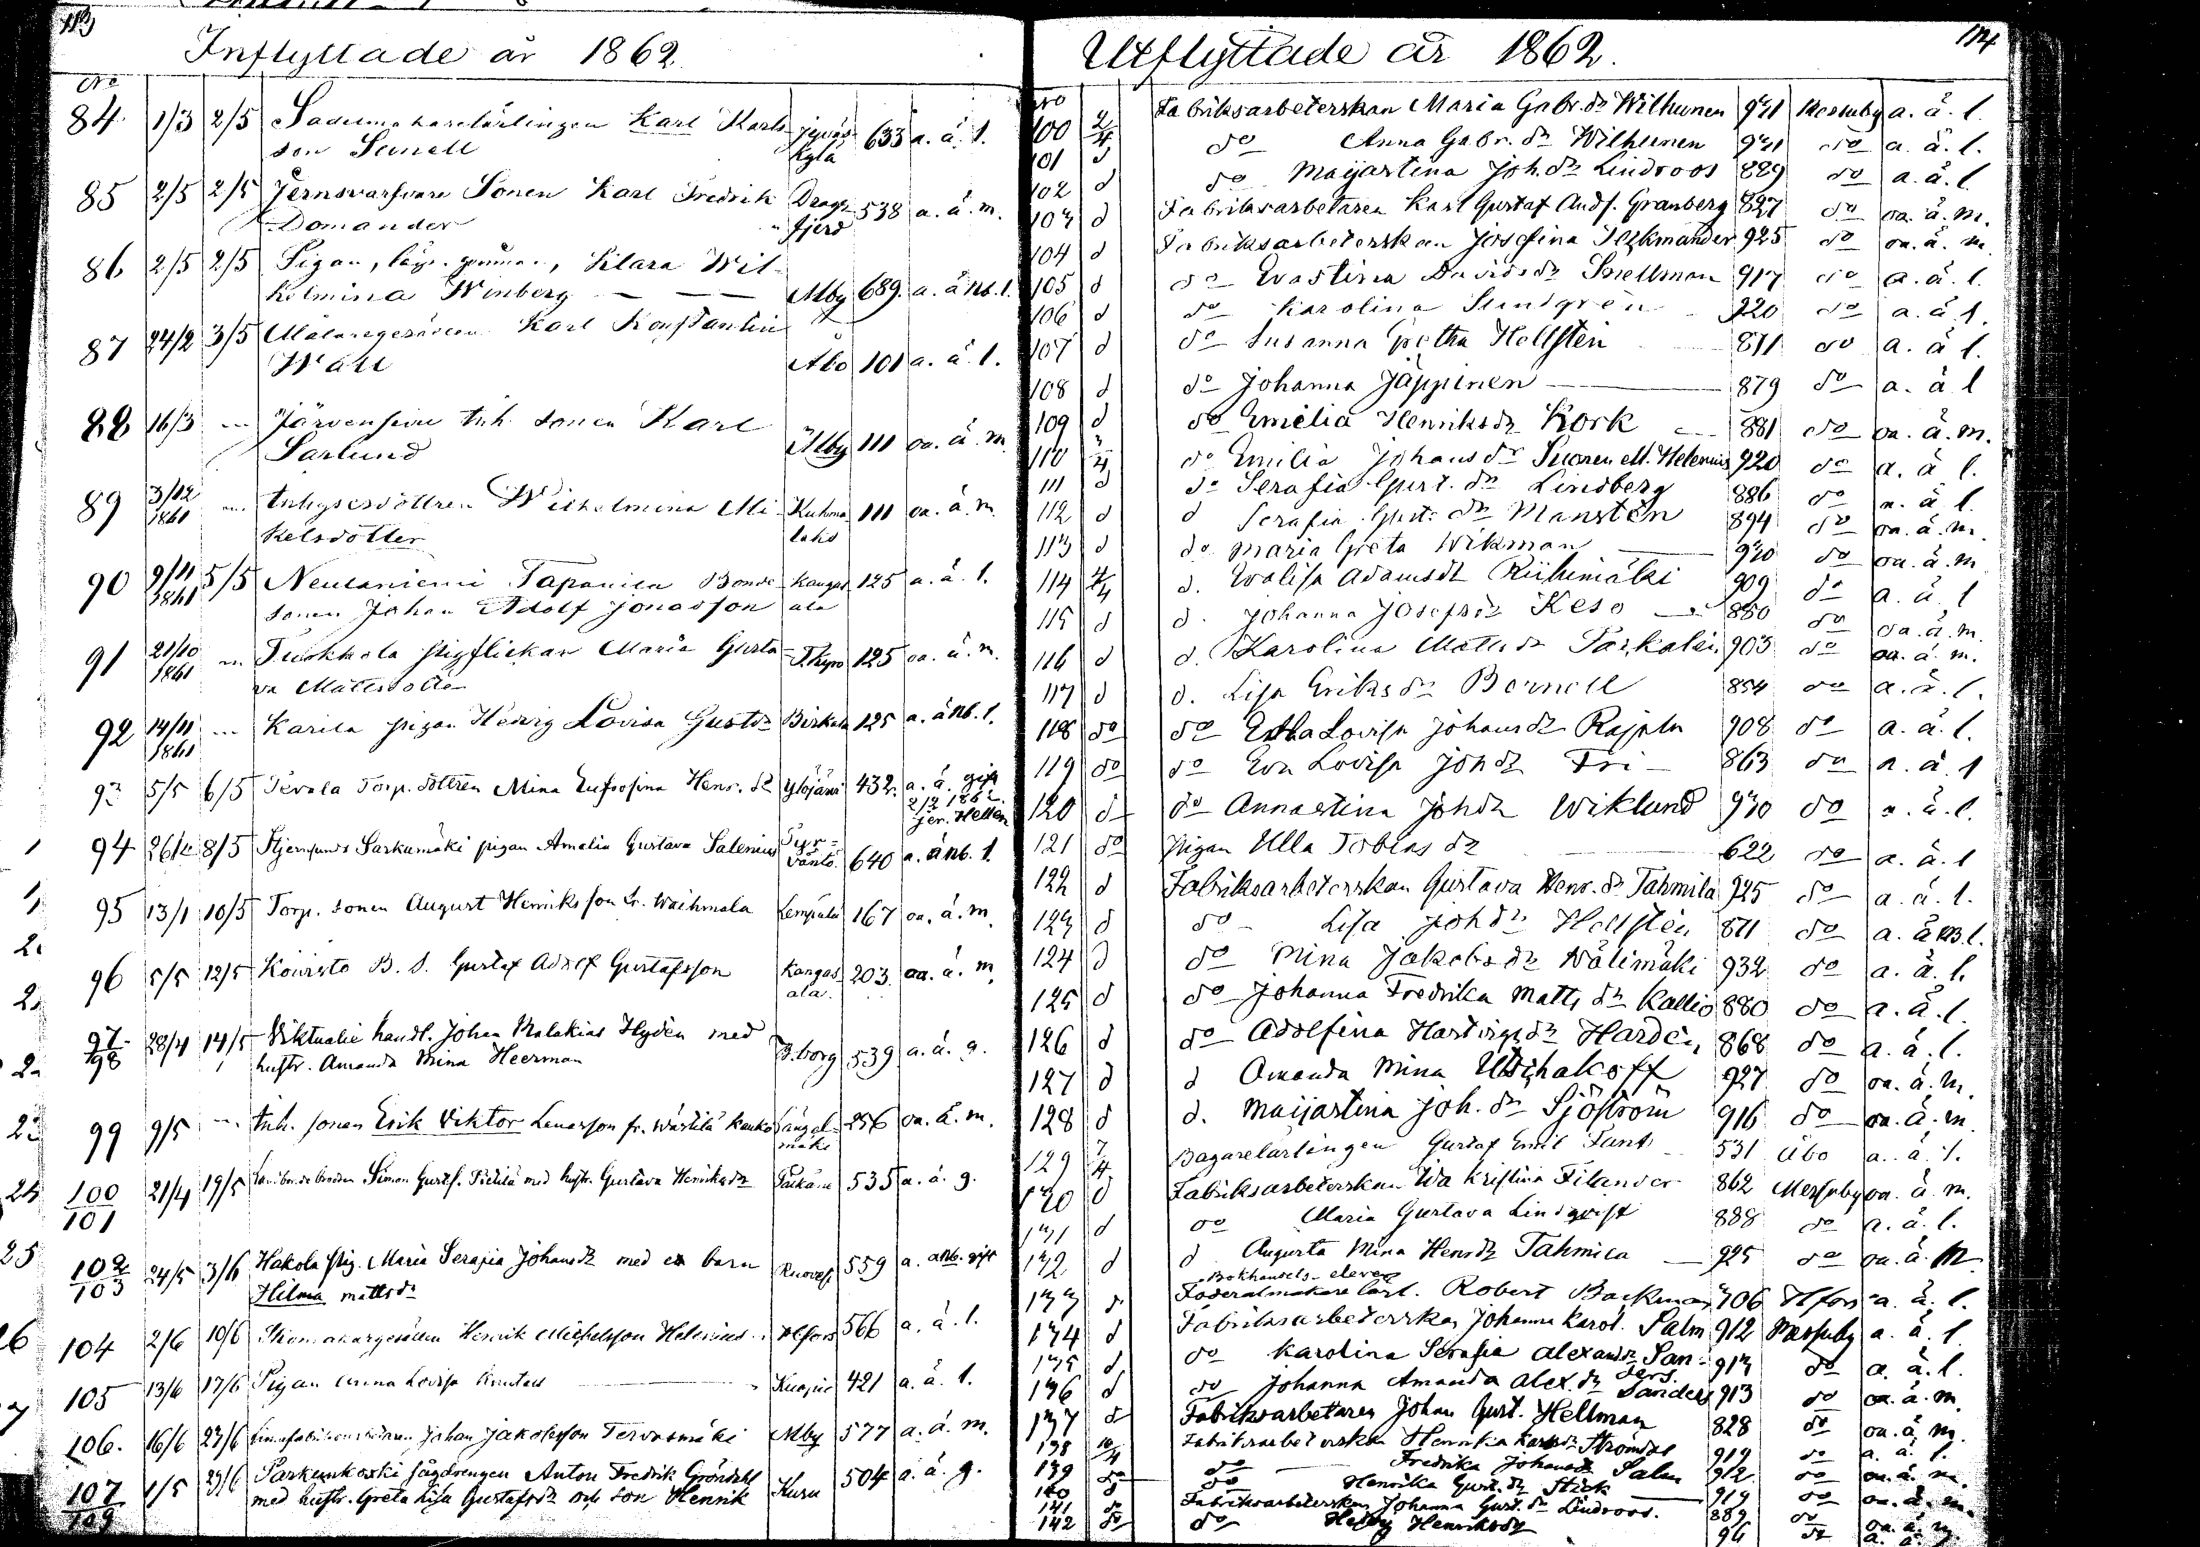 113
Inflyttade år 1862.
No
84. 1/3 2/5 Sadelmakarelärlingen Karl Karls- Jyväs- 633 a. ä. l.
son kylä
85 2/5 2/5 Jernsvarfvare Sonen Karl Fredrik Drags- 538 a. ä. m.
Domander fjerd
86 2/5 2/5 Pigan, Klara Wil-
helmina Winberg Mby 689. a. ä Nb. l.
87 24/2 3/5 Målaregesällen Karl Konstantin
Wall Åbo 101 a. ä. l.
88 16/3 Karl
Sarlund Mby 111 oa. ä. m.
89 3/12 1861 Inhysesdottren Wilhelmina Mi- Kuhma- 111 oa. ä. m.
kelsdotter laks
90 9/11 1861 5/5 Neulaniemi Tapanila Bonde Kangas 125 a. ä. l.
sonen Johan Adolf Jonasson ala
91 21/10 1861 pigflickan Maria Gusta- T.kyro 125 oa. ä. m.
va Mattsdotter
92 14/11 1861 Karila pigan Hedvig Lovisa Gustdr Birkala 125 a. ä Nb. l.
93 5/5 6/5 Torp. dottren Mina Eufrosina Henr. dr Ylöjärvi 432. a. ä. gift
2/2 1862.
Jer. Hellen
94 26/4 8/5 Sarkamäki pigan Amalia Gustava Salenius Tyr-
väntö. 640 a. ä Nb. l.
95 13/1 10/5 Torp. sonen August Henriksson fr. Waihmala Lempälä 167 oa. ä. m.
96 5/5 12/5 Koivisto B. S. Gustaf Adolf Gustafsson Kangas- 203. oa. ä. m.
ala.
97-
98 28/4 14/5 Viktualie handl. Johan Malakias Hydén med
hustr. Amanda Mina Heerman B.borg 539 a. ä. g.
99 9/5 Inh. sonen Erik Viktor Lenasson fr. Wärtilä Längel- 256 oa. ä. m.
mäki
100
101 21/4 19/5 Simon Gustfs. med hustr. Gustava Henriksdr Pälkäne 535 a. ä. g.
102
103 24/5 3/6 Hakola pig. Maria Serafia Johansdr med barn Ruovesi 559 a. ä Nb. gift
Hilma Mattsdr
104 2/6 10/6 Skomakargesällen Henrik Michelsson Helenius Hfors 566 a. ä. l.
105 13/6 17/6 Pigan Anna Lovisa Kuopio 421 a. ä. l.
106. 16/6 23/6 Johan Jakobsson Tervasmäki Mby 577 a. ä. m.
107
109 1/5 23/6 Parkunkoski sågdrengen Anton Fredrik Gröndahl
med hustr. Greta Lisa Gustafsdr och son Henrik Kuru 504 a. ä. g.
114
Utflyttade år 1862.
No
100 2/4 Fabriksarbeterskan Maria Gabr. dr Wilhunen 931 Messuby a. ä. l.
101 d do Anna Gabr. dr Wilhunen 931 do a. ä. l.
102 d do Majjastina Joh. dr Lindroos 889 do a. ä. l.
103 d Fabriksarbetaren Karl Gustaf Andf. Granberg 827 do oa. ä. m.
104 d Fabriksarbeterskan Josefina 925 do oa. ä. m.
105 d do Evastina Davidsdr Snellman 917 do a. ä. l.
106 d do Karolina Sundgren 920 do a. ä. l.
107 d do Susanna Gretha Hellstén 871 do a. ä l.
108 d do Johanna Jäppinen 879 do a. ä l
109 d do Emelia Henriksdr Kork 881 do oa. ä. m.
110 3/4 do Emilia Johansdr Helenius 920 do a. ä l.
111 d do Serafia Gust. dr Lindberg 886 do a. ä l.
112 d d Serafia Gust. dr Manstén 894 do oa. ä. m.
113 d do Maria Greta Wikman 930 do oa. ä. m.
114 4/4 d. Evalisa Adamsdr Riihimäki 909 do a. ä. l
115 d d. Johanna Josefsdr Keso 880 do oa. ä. m.
116 d d. Karolina Mattsdr 903 do oa. ä. m.
117 d d. Lisa Eriksdr Bornell 854 do a. ä. l.
118 do do Lovisa Johansdr Rajala 908 do a. ä. l.
119 do do Eva Lovisa Johdr Fri 863 do a. ä. l
120 d do Annastina Johdr Wiklund 930 do a. ä. l.
121 do Pigan Ulla Tobiasdr 622 do a. ä. l
122 d Fabriksarbeterskan Gustava Henr. dr Tahmila 925 do a. ä. l.
123 d do Lisa Johdr Hellstén 871 do a. ä NB. l.
124 d do Mina Jakobsdr Wälimäki 932 do a. ä. l.
125 d do Johanna Fredrika Matts dr Kallio 880 do a. ä. l.
126 d do Adolfina Hartvigsdr Hardén 868 do a. ä. l.
127 d d Amanda Mina Utschakoff 927 do oa. ä. m.
128 d d. Maijastina Joh. dr Sjöström 916 do oa. ä. m
129 7/4 Bagarelärlingen Gustaf Emil 531 Åbo a. ä. l.
130 d Fabriksarbeterskan Ida Kristina Filander 862 Messuby oa. ä. m.
131 d do Maria Gustava Lindqvist 888 do a. ä. l.
132 d d Augusta Mina Henrdr Tahmila 925 do oa. ä. m
Bokhandels-eleven
133 d Foderalmakare lärl. Robert Backman 706 Hfors a. ä. l.
134 d Fabriksarbeterskan Johanna Karol. Salm 912 Messuby a. ä. l.
135 d do Karolina Serafia Alexandr San-
ders. 913 do a. ä. l.
136 d do Johanna Amanda Alex. dr Sanders 913 do oa. ä. m.
137 d Fabriksarbetaren Johan Gust. Hellman 828 do oa. ä m.
138 10/4 Fabriksarbeterskan Henrika Karlsdr Strömdal 919 do a. ä. l.
139 do do Fredrika Johansdr Salm 912 do oa. ä. m.
140 d do Henrika Gust. dr Stick 919 do oa. ä. m.
141 do Fabriksarbeterskan Johanna Gust. dr Lindroos. 889 do oa. ä. m.
142 do do Hedvig Henriksdr 96 do a. ä. l